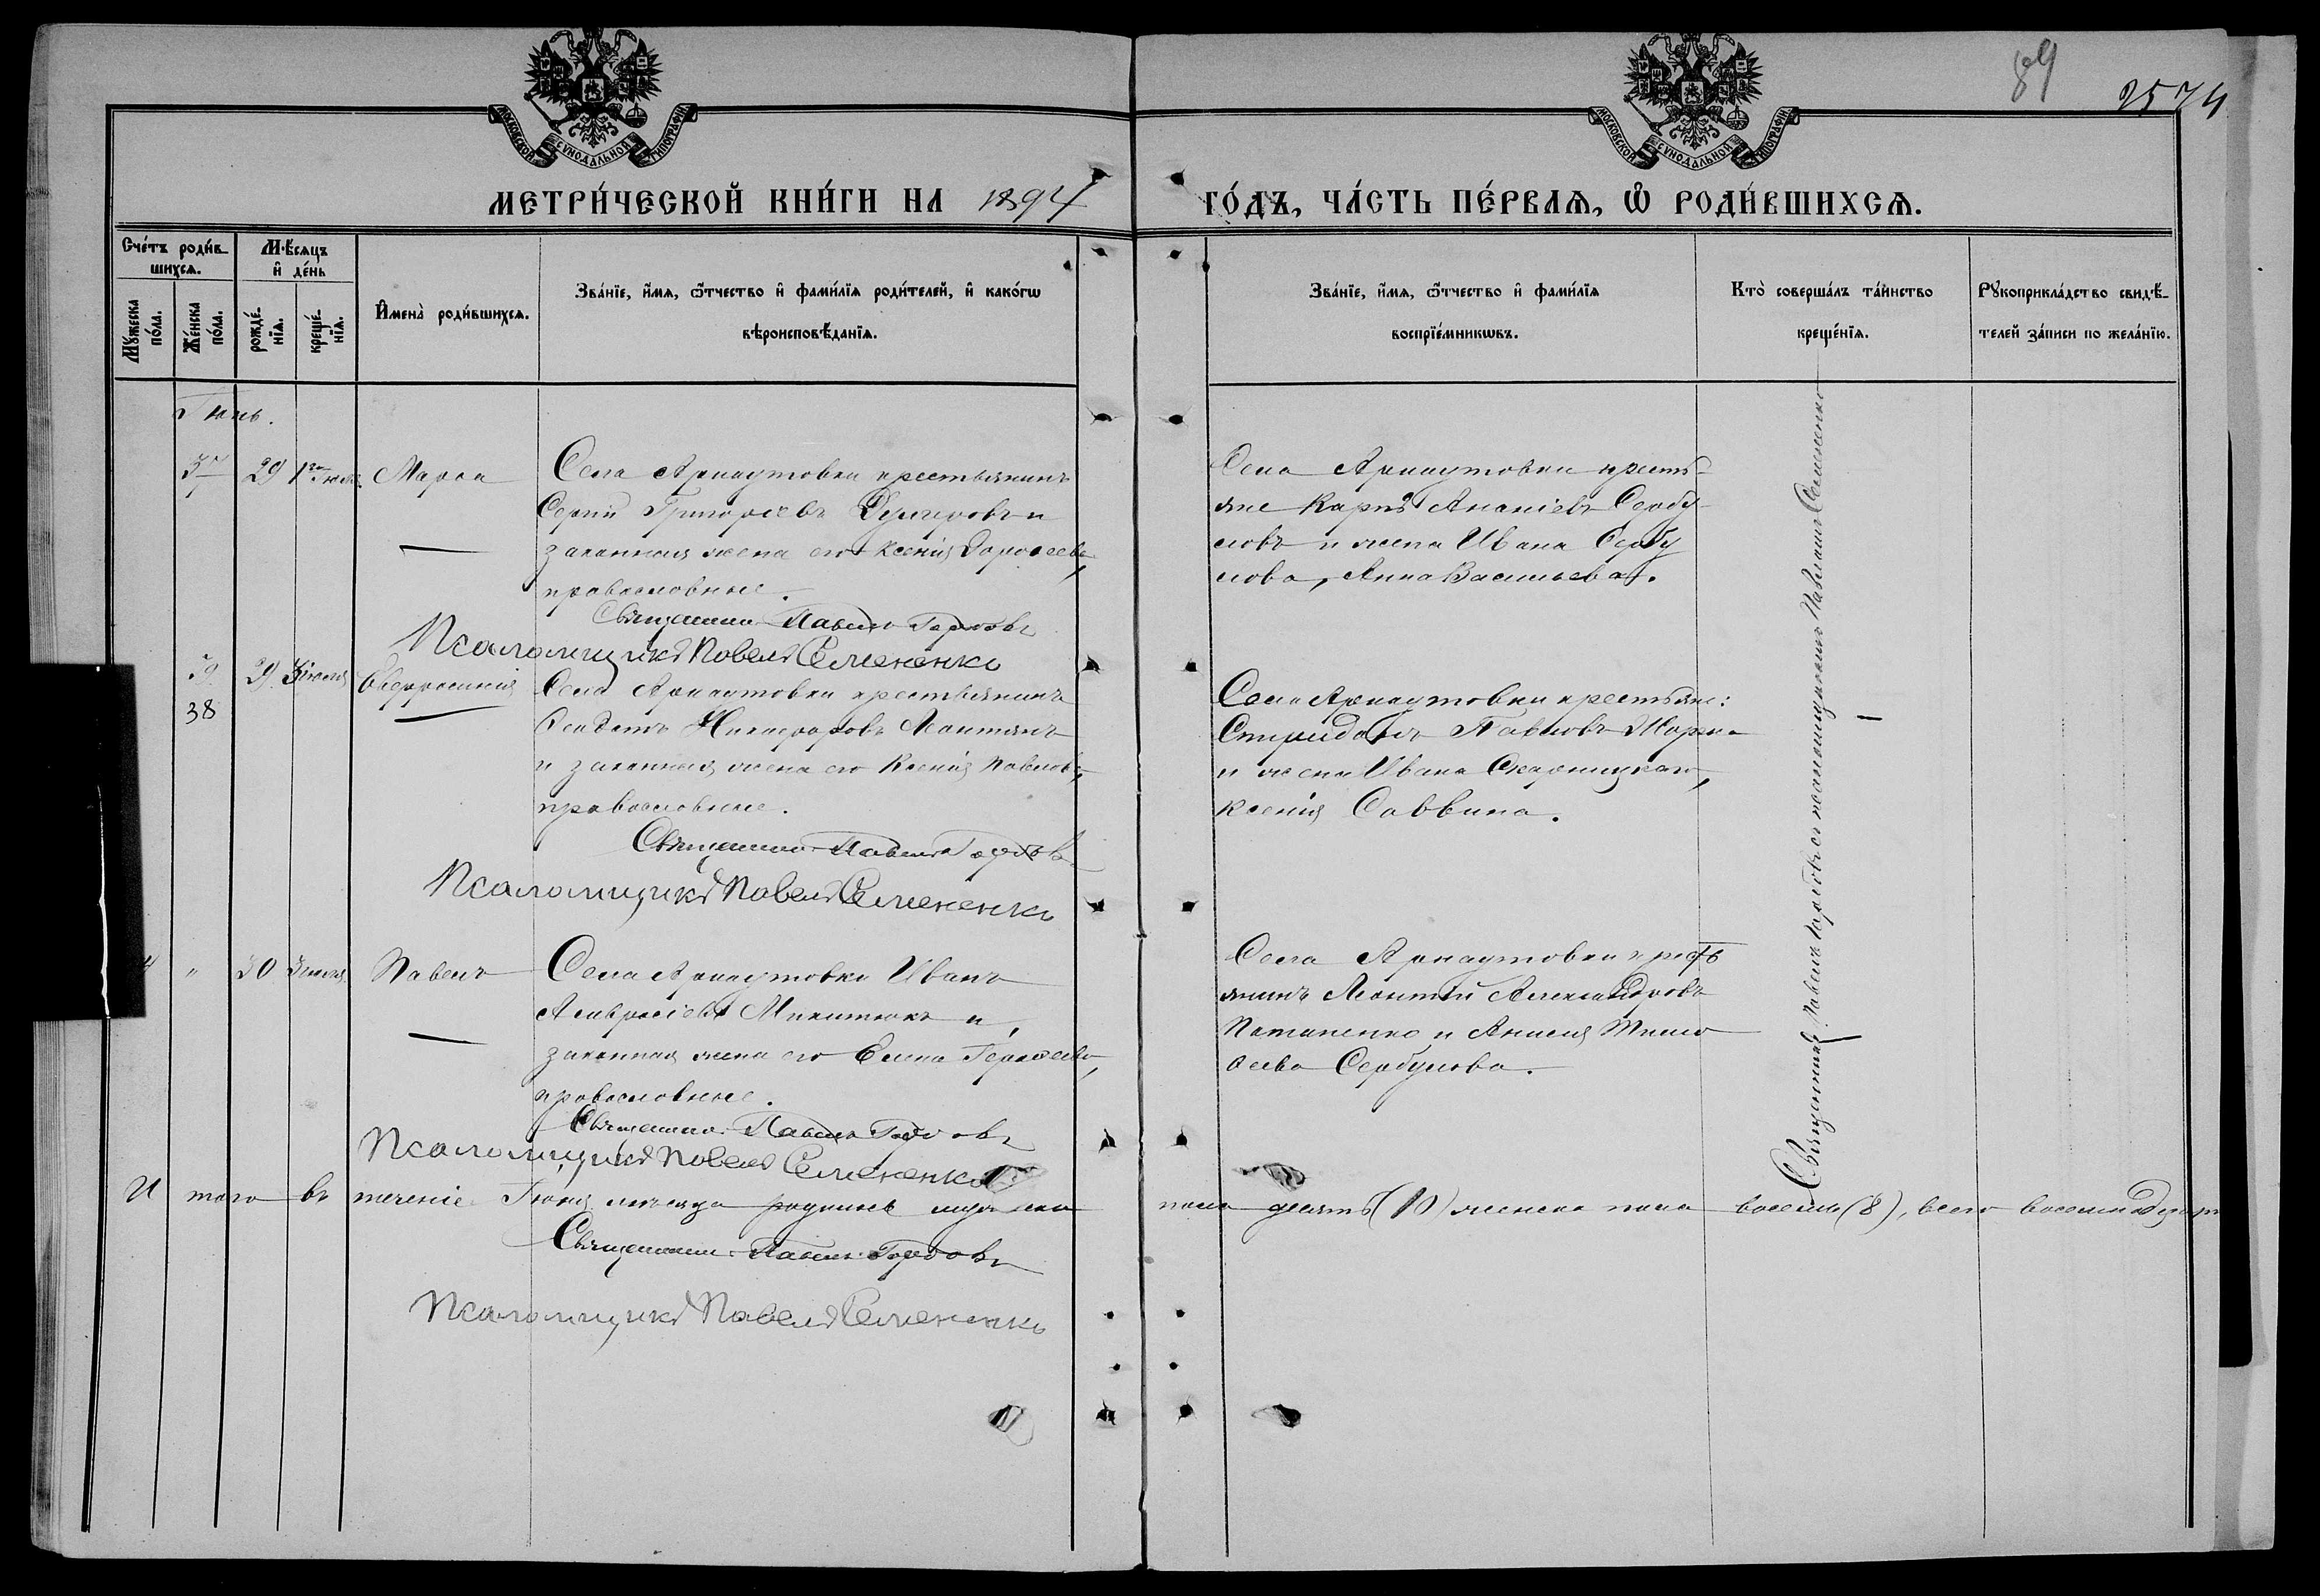 89
2574
МОСКОВСКОЙ СУНОДАЛЬНОЙ ТИПОГРАФІИ
МОСКОВСКОЙ СУНОДАЛЬНОЙ ТИПОГРАФІИ
МЕТРИ́ЧЕСКОЙ КНИ́ГИ НА 1894 ГО́ДЪ, ЧА́СТЬ ПЕ́РВАѦ, Ѡ҆ РОДИ́ВШИХСѦ.
Сче́тъ роди́в-
шихсѧ.
Мѣ́сѧцъ
и҆ де́нь
Мꙋ́жеска
по́ла.
Же́нска
по́ла.
рожде́-
нїѧ.
креще́-
нїѧ.
И҆мена̀ роди́вшихсѧ.
Зва́нїе, и҆́мѧ, ѻ҆́тчество и҆ фами́лїѧ роди́телей, и҆ како́гѡ
вѣроисповѣ́данїѧ.
Зва́нїе, и҆́мѧ, ѻ҆́тчество и҆ фами́лїѧ
воспрїе́мникѡвъ.
Кто̀ соверша́лъ та́инство
креще́нїѧ.
Рꙋкоприкла́дство свидѣ́-
телей за́писи по жела́нїю.
Іюнь.
37 29 1го Іюля Марѳа
Села Арнаутовки крестьянинъ
Сергій Григорьевъ и
законная жена его Ксенія Дороѳеева,
православные.
Священникъ Павелъ Горбовъ
Псаломщикъ Павелъ Семененко
Села Арнаутовки кресть-
яне Карпъ Ананіевъ Сербу-
ловъ и жена Ивана Сербу
лова, Анна Васильева.
38 29 3 іюля Евфросинія
Села Арнаутовки крестьянинъ
Никифоровъ
и законная жена его Ксенія Павлова,
православные.
Священникъ Павелъ Горбовъ
Псаломщикъ Павелъ Семененко
Села Арнаутовки крестьяне:
Спиридонъ Павловъ
и жена Ивана Скарницкаго,
Ксенія Саввина.
" 30 3 іюля Павелъ
Села Арнаутовки Иванъ
Амвросіевъ Микитюкъ и
законная жена его Елена Герасиева,
православные.
Священникъ Павелъ Горбовъ
Псаломщикъ Павелъ Семененко
Села Арнаутовки кресть
янинъ Леонтій Александровъ
Потапенко и Анисія Тимо
ѳеева Сербулова.
Священникъ Павелъ Горбовъ съ псаломщикомъ Павломъ Семененко
И того въ теченіе Іюня мѣсяца родилось мужеска пола десять (10) женска пола восемь (8), всего восемнадцать
Священникъ Павелъ Горбовъ
Псаломщикъ Павелъ Семененко